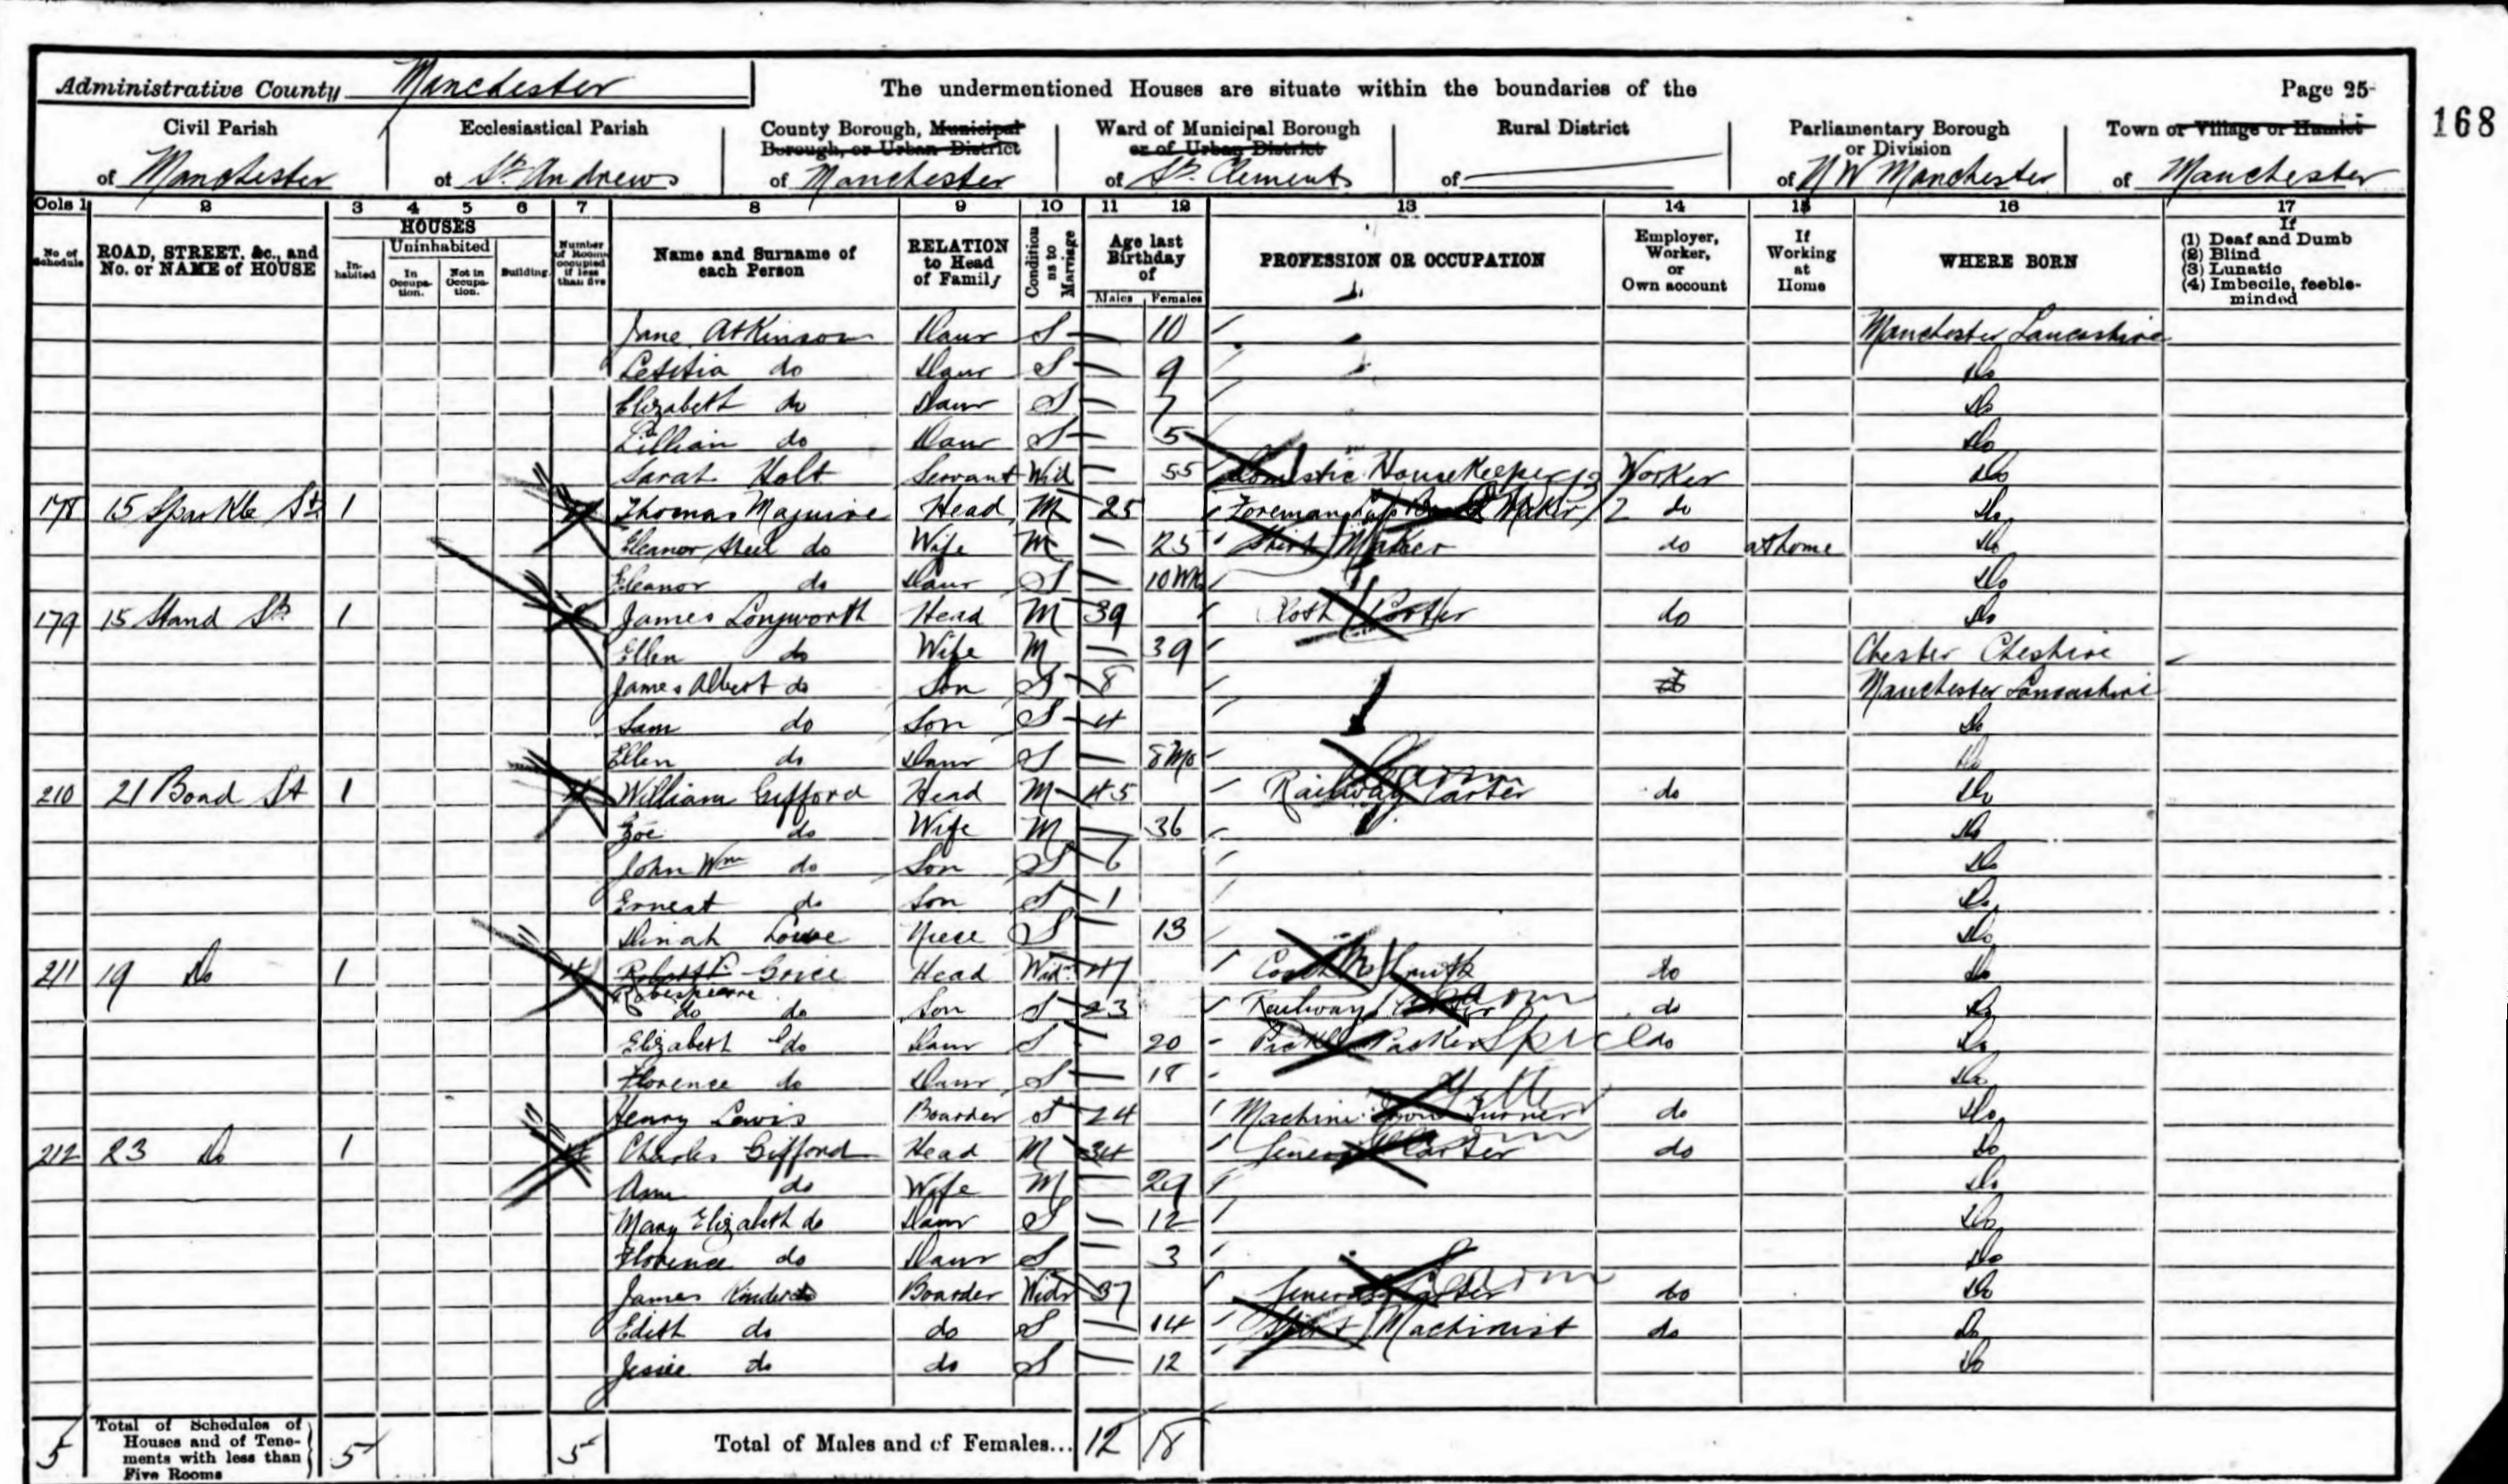 Administrative County Manchester
The undermentioned Houses are situate within the boundaries of the
Page 25
168
Civil Parish of Manchester
Ecclesiastical Parish of St. Andrews
County Borough, Municipal Borough, or Urban District of Manchester
Ward of Municipal Borough or of Urban District of St. Clements
Rural District of
Parliamentary Borough or Division of N W Manchester
Town or Village or Hamlet of Manchester
Cols 1 2 3 4 5 6 7 8 9 10 11 12 13 14 15 16 17
No of Schedule
ROAD, STREET, &c., and No. or NAME of HOUSE
HOUSES
Inhabited
Uninhabited
In Occupation.
Not in Occupation.
Building
Number of Rooms occupied if less than five
Name and Surname of each Person
RELATION to Head of Family
Condition as to Marriage
Age last Birthday of
Males Females
PROFESSION OR OCCUPATION
Employer, Worker, or Own account
If Working at Home
WHERE BORN
If
(1) Deaf and Dumb
(2) Blind
(3) Lunatic
(4) Imbecile, feeble-minded
Jane Atkinson Daur S 10 Manchester Lancashire
Letitia do Daur S 9 Do
Elizabeth do Daur S 7 Do
Lillian do Daur S 5 Do
Sarah Holt Servant Wid 55 Domestic Housekeeper Worker Do
178 15 Sparkle St 1 Thomas Maguire Head M 25 Foreman Maker do Do
Eleanor Steel do Wife M 25 Shirt Maker do at home Do
Eleanor do Daur S 10 Wks Do
179 15 Stand St 1 James Longworth Head M 39 Porter do Do
Ellen do Wife M 39 Chester Cheshire
James Albert do Son S 8 Manchester Lancashire
Sam do Son S 4 Do
Ellen do Daur S 8 Mo Do
210 21 Bond St 1 4 William Gifford Head M 45 Railway Carter do Do
Zoe do Wife M 36 Do
John Wm do Son S 6 Do
Ernest do Son S 1 Do
Dinah Lowe Niece S 13 Do
211 19 Do 1 4 Grice Head Widr 47 Smith do Do
Robespierre
do do Son S 23 Railway Carter do Do
Elizabeth do Daur S 20 Pickle Packer Spice do Do
Florence do Daur S 18 Do
Henry Lewis Boarder S 24 Machine Turner do Do
212 23 Do 1 4 Charles Gifford Head M 34 General Carter do Do
Ann do Wife M 29 Do
Mary Elizabeth do Daur S 12 Do
Florence do Daur S 3 Do
James Boarder Widr 37 General Carter do Do
Edith do do S 14 Shirt Machinist do Do
Jessie do do S 12 Do
5 Total of Schedules of Houses and of Tenements with less than Five Rooms 5 5 Total of Males and of Females... 12 18